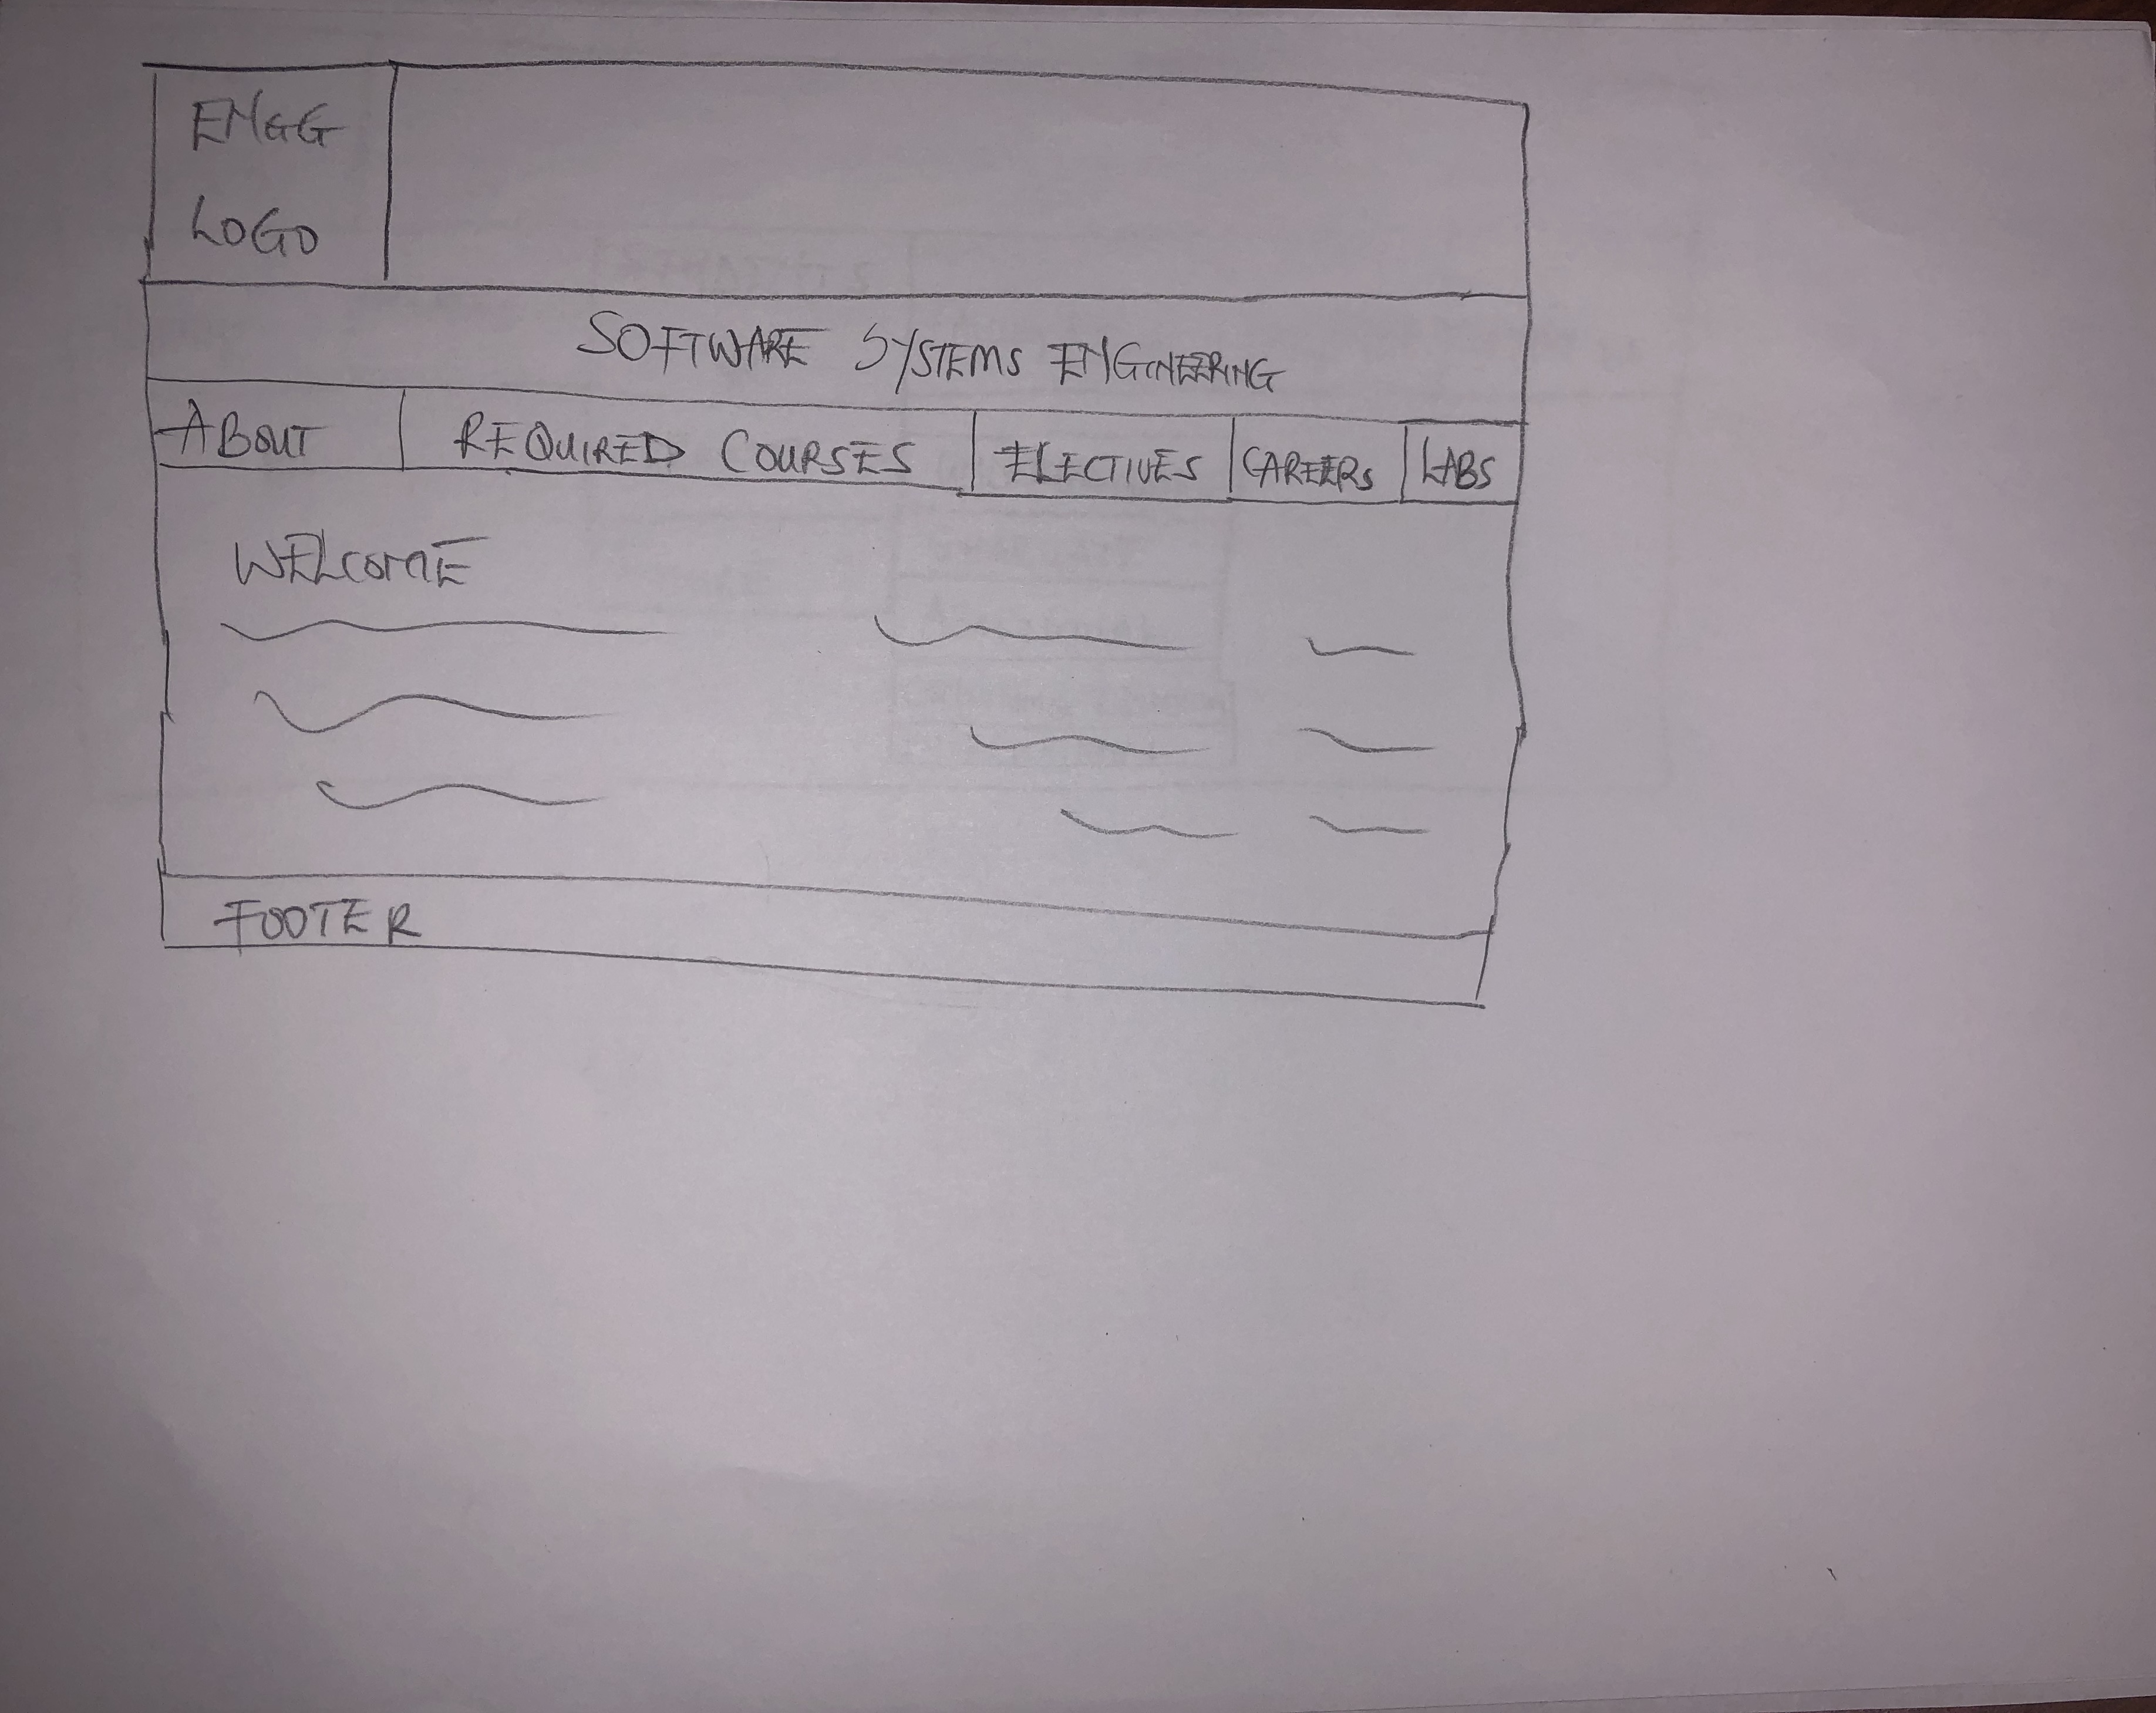 ENGG
LOGO
SOFTWARE SYSTEMS ENGINEERING
ABOUT REQUIRED COURSES ELECTIVES CAREERS LABS
WELCOME
FOOTER